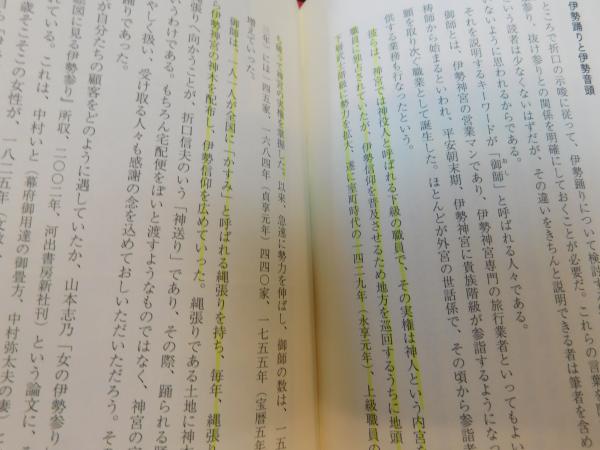 伊勢踊りと伊勢音頭
ところで折口の示唆に従って、伊勢踊りについて検討する
参り、抜け参りとの関係を明確にしておくことが必要だ。これらの言葉を
いう読者は少なくないはずだが、その違いをきちんと説明できる者は筆者を含め
ないように思われるからである。
それを説明するキーワードが「御師」と呼ばれる人々である。
御師とは、伊勢神宮の営業マンであり、伊勢神宮専門の旅行業者といってもよい
祷師から始まるといわれ、平安朝末期、伊勢神宮に貴族階級が参詣するようになっ
願を取り次ぐ職業として誕生した。ほとんどが外宮の世話係で、その頃から参詣者
供する業務も行なったという。
彼らは、神宮では神役人と呼ばれる下級の職員で、その実権は神人という内宮
職員に独占されていたが、伊勢信仰を普及させるため地方を巡回するうちに地頭
下級武士階級に勢力を拡大、遂に室町時代の一四二九年(永享元年)、上級職員の
を破って神宮の実権を掌握した。以来、急速に勢力を伸ばし、御師の数は、一五
年)には一四五家、一六八四年(貞享元年)四四〇家、一七五五年(宝暦五年
増えていった。
御師は、一人一人が全国に「かすみ」と呼ばれる縄張りを持ち、毎年、縄張り
ら伊勢神宮の神木を配布し、伊勢信仰を広めていった。縄張りである土地に神木
張り)へ向かうことが、折口信夫のいう「神送り」であり、その際、踊られる
いうわけである。もちろん宅配便をぽいと渡すようなものではなく、神宮の
やしく扱い、受け取る人々も感謝の念を込めておしいただいただろう。そ
りであった。
が自分たちの顧客をどのように遇していたか、山本志乃「女の伊勢参り」
図に見る伊勢参り』所収、二〇〇二年、河出書房新社刊)という論文に、
れている。これは、中村いと(幕府御用達の御畳方、中村弥太夫の妻)と
歳そこそこの女性が、一八二五年(文政